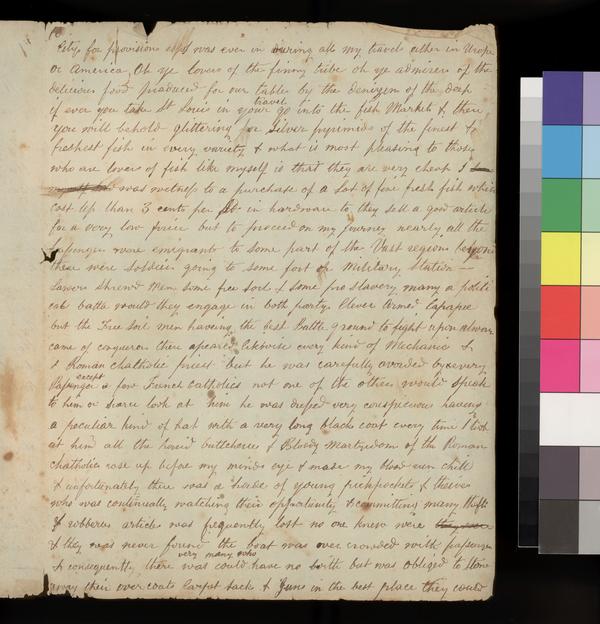 City for provisions as I was ever in during all my travels either in Urope
or America, Oh ye lovers of the finny tribe oh ye admirers of the
delicious food produced for our tables by the denizen of the deep
travel
if ever you take St Louis in your go into the fish Markets & there
you will behold glittering like Silver pyrimids of the finest &
freshest fish in every variety & what is most pleasing to those
who are lovers of fish like myself is that they are very cheap I
was witness to a purchase of a Lot of fine fresh fish which
cost less than 3 cents per lb in hardware to they sell a good article
for a very low price but to proceed on my journey nearly all the
passengers were emigrants to some part of the Vast regions beyond
there were soldiers going to some fort or Military Station —
Lawers shrewd Men some free soil & some pro slavery many a politi
cal battle would they engage in both partys Clever Armed Capapee
but the Free Soil men having the best Battle ground to fight upon always
came of conquerors there apeared likewise every kind of Mechanic &
a Roman Chatholic priest but he was carefully avoided by every
except
Passenger a few French Catholics not one of the others would speak
to him or scarce look at him he was dressed very conspicuous having
a peculiar kind of hat with a very long black coat every time I look
at him all the horrid buttcheries & Bloody Martyrdom of the Roman
chatholics rose up before my minds eye & made my blood run chill
& unfortunately there was a of young pickpockets & theives
who was continually watching their oppertunity & committing many thefts
& robberes articles was frequently lost no one knew were
& they was never found the boat was over crowded with passengers
very many who
& consequently there was could have no birth but was obliged to stone
away their over coats Carpet Sack & Guns in the best place they could